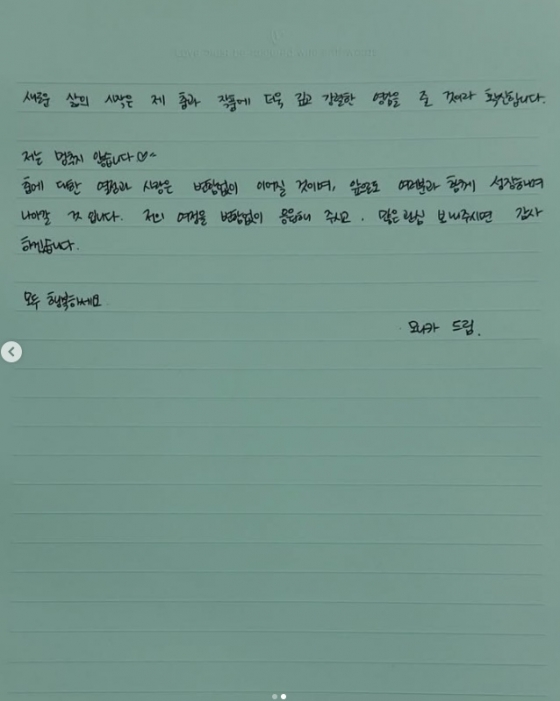 새로운 삶의 시작은 제 춤과 작품에 더욱 깊고 강렬한 영감을 줄 것이라 확신합니다.
저는 멈추지 않습니다 ♡^
춤에 대한 열정과 사랑은 변함없이 이어질 것이며, 앞으로도 여러분과 함께 성장하며
나아갈 것 입니다. 저의 여정을 변함없이 응원해 주시고, 많은 관심 보내주시면 감사
하겠습니다.
모두 행복하세요.
모니카 드림.